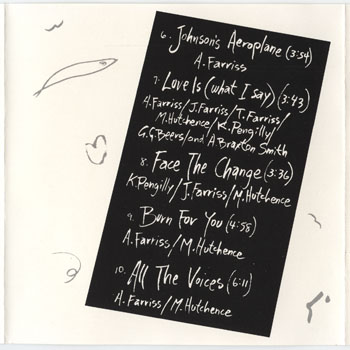 6. Johnson's Aeroplane (3:54)
A. Farriss
7. Love Is (what I say) (3:43)
A. Farriss/J. Farriss/T. Farriss/
M. Hutchence/K. Pengilly/
G.G. Beers/and A. Braxton Smith
8. Face The Change (3:36)
K. Pengilly/J. Farriss/M. Hutchence
9. Burn For You (4:58)
A. Farriss/M. Hutchence
10. All The Voices (6:11)
A. Farriss/M. Hutchence